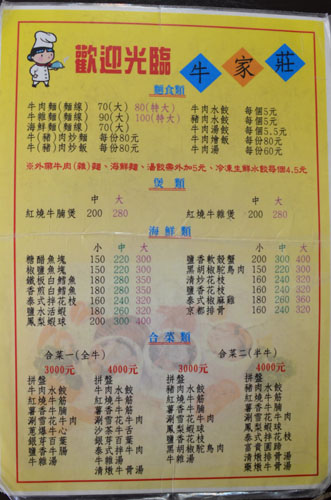 歡迎光臨 牛家莊
麵食類
牛肉麵(麵線) 70(大) 80(特大)
牛雜麵(麵線) 90(大) 100(特大)
海鮮麵(麵線) 70(大)
牛(豬)肉炒麵 每份80
牛(豬)肉炒飯 每份80
牛肉水餃 每個5元
豬肉水餃 每個5元
牛肉湯餃 每個5.5元
牛肉燴飯 每份80元
牛肉湯 每份60元
※外帶牛肉(雜)麵、海鮮麵、湯餃需外加5元、冷凍生鮮水餃每個4.5元
煲類
中 大
紅燒牛腩煲 200 280
中 大
紅燒牛雜煲 200 280
海鮮類
小 中 大
糖醋魚塊 150 220 300
椒鹽魚塊 150 220 300
鐵板鱈魚 180 280 350
香煎白鱈魚 180 280 350
泰式拌花枝 160 240 320
鹽水活蝦 160 240 320
鳳梨蝦球 160 240 320
小 中 大
鹽香軟殼蟹 200 300 400
黑胡椒駝鳥肉 200 300 400
清炒花枝 160 240 320
鹽香花枝 160 240 320
泰式椒麻雞 160 240 320
京都排骨 160 240 320
合菜類
合菜一(全牛)
3000元
拼盤
牛肉水餃
紅燒牛筋
薯香牛腩
涮雪花牛肉
蔥爆牛心
銀芽百葉
鹽香牛腸
牛雜湯
4000元
拼盤
牛肉水餃
紅燒牛筋
薯香牛腩
涮雪花牛肉
沙茶牛舌
銀芽百葉
泰式拌牛肉
牛雜湯
清燉牛骨湯
合菜二(半牛)
3000元
拼盤
豬肉水餃
紅燒牛腩
涮雪花牛肉
鳳梨蝦球
鹽香花枝
泰式拌牛肉
牛雜湯
清燉牛骨湯
4000元
拼盤
牛肉水餃
紅燒牛筋
薯香牛腩
涮雪花牛肉
鹽香花枝
黑胡椒駝鳥肉
牛雜湯